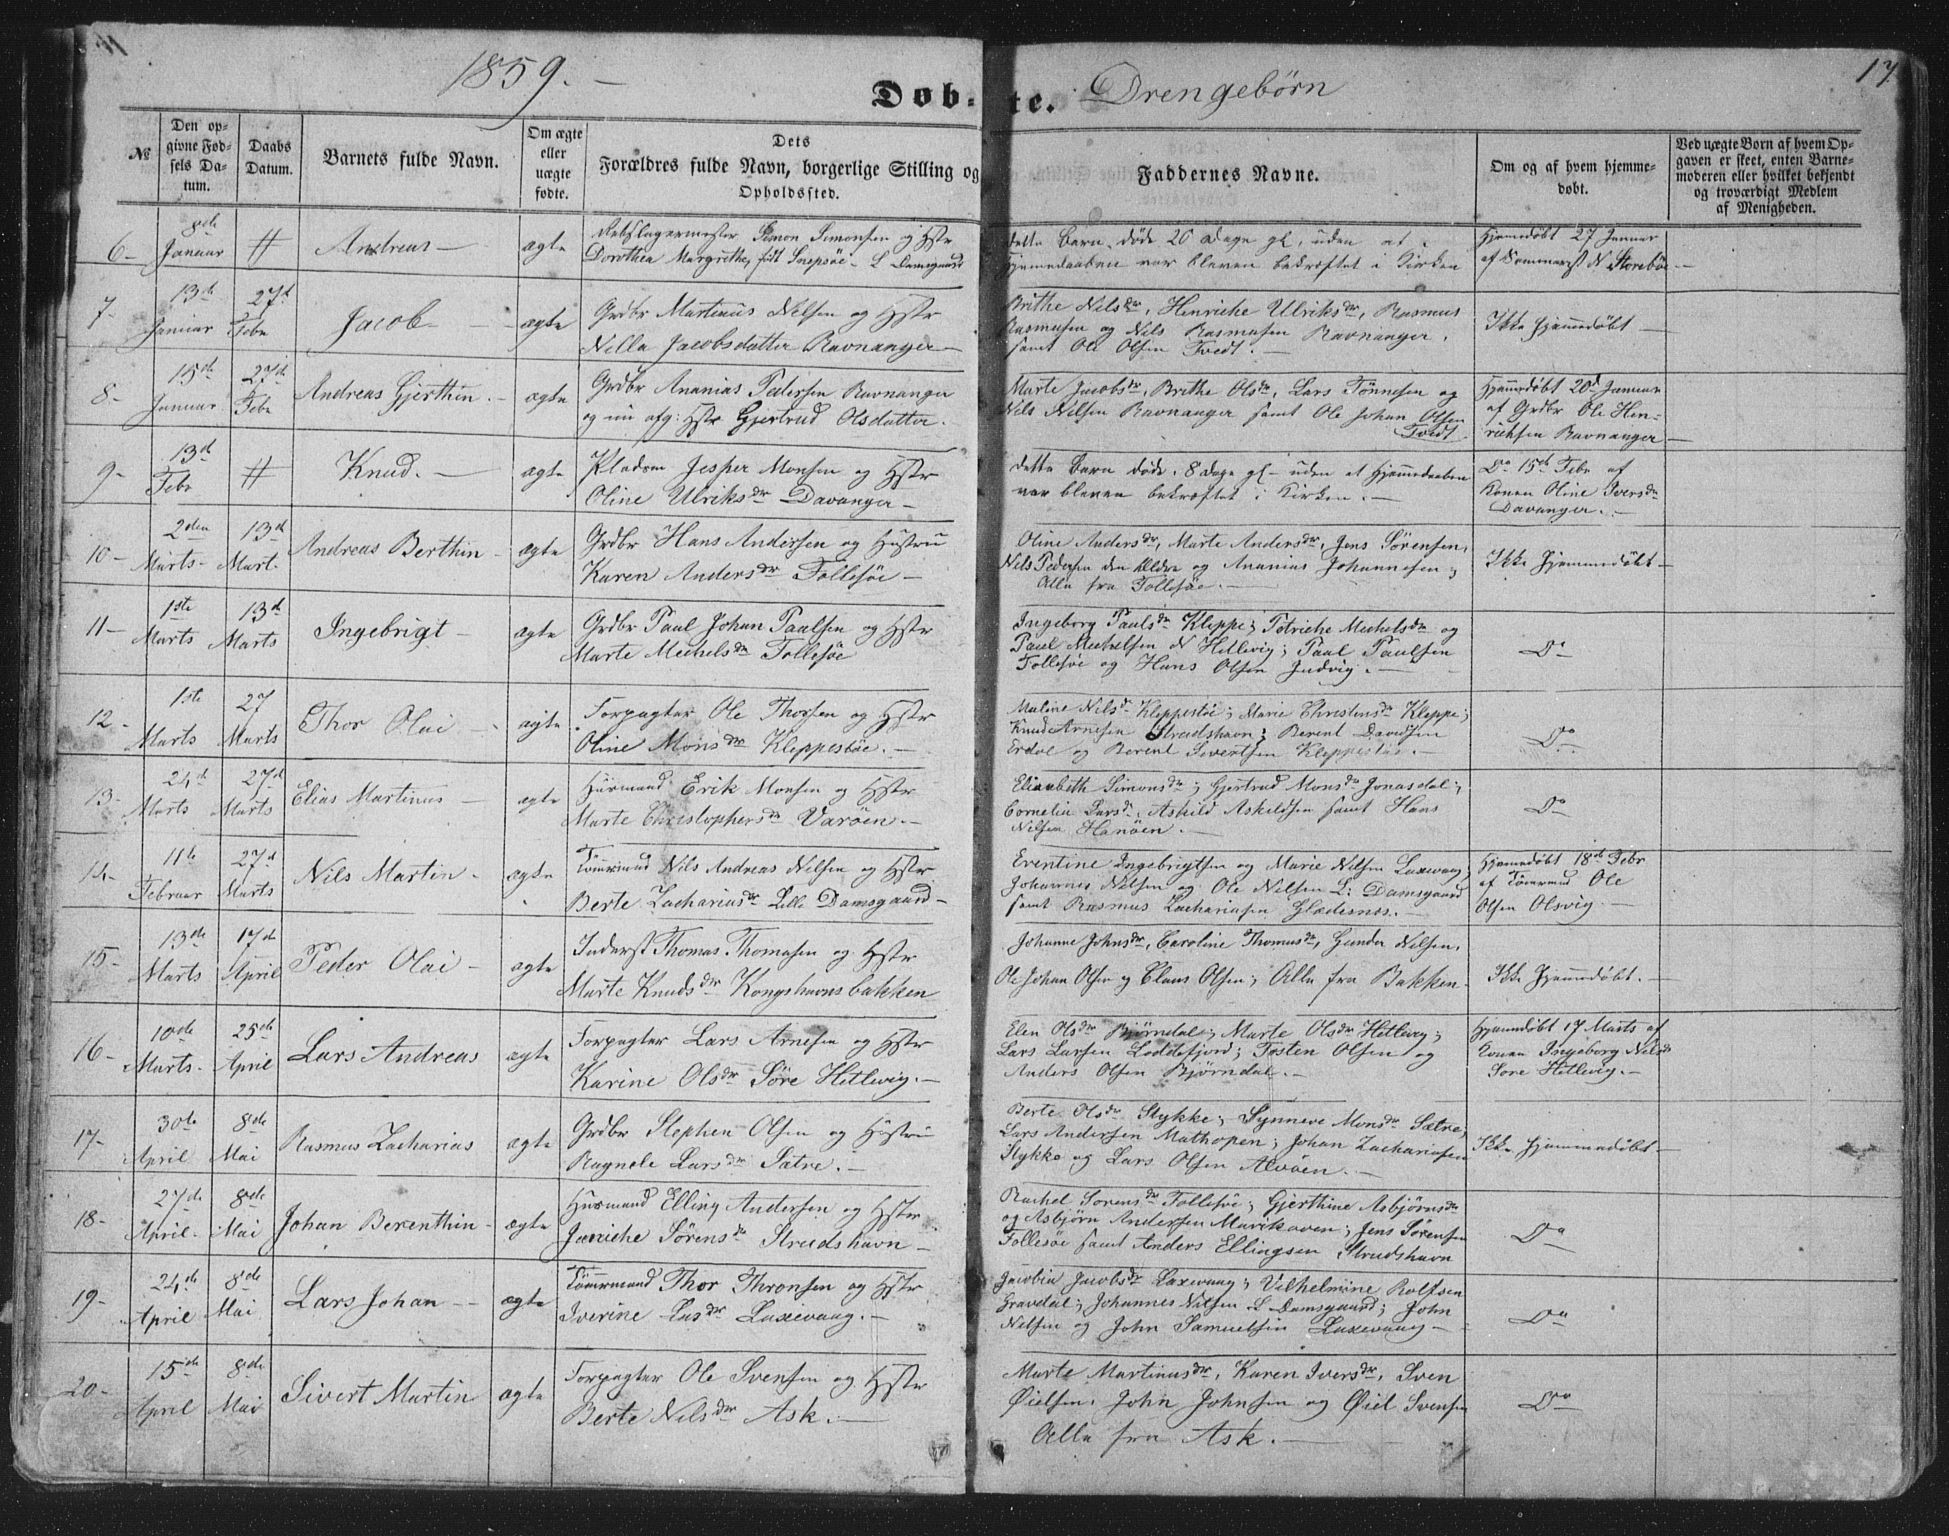 1859. —
Døb-te. Drengebørn
17
№
Den opgivne Fødsels Datum.
Daabs Datum.
Barnets fulde Navn.
Om ægte eller uægte fødte.
Dets Forældres fulde Navn, borgerlige Stilling og Opholdssted.
Faddernes Navne.
Om og af hvem hjemmedøbt.
Ved uægte Børn af hvem Opgaven er skeet, enten Barnemoderen eller hvilket bekjendt og troværdigt Medlem af Menigheden.
6- 8de Januar # Andreas — ægte
Rebslagermester Simon Simonsen og Hstr
Dorothea Margrethe, født Snepsøe - L Damsgaard
dette Barn døde 20 Dage gl, uden at
Hjemedaaben var bleven bekræftet i Kirken
Hjemedøbt 27 Januar
af Kommerest N Storebøe —
7- 13de Januar 27d Febr Jacob — ægte
Grdbr Martinus Nelsen og Hstr
Nille Jacobsdatter Ravnanger —
Brithe Nilsdr, Henriche Ulriksdr, Rasmus
Rasmusen og Nils Rasmusen Ravnanger,
samt Ole Olsen Tvedt. —
Ikke Hjemmedøbt —
8- 15de Januar 27de Febr Andreas Gjerthin. - ægte
Grdbr Ananias Pedersen Ravnanger
og nu afg: Hstr Gjertrud Olsdatter.
Marte Jacobsdr, Brithe Olsdr, Lars Tønnesen og
Nils Nilsen Ravnanger samt Ole Johan Olsen
Tvedt
Hjemedøbt 20d Januar
af Grdbr Ole Hen-
richsen Ravnanger —
9- 13d Febr # Knud. — ægte
Pladsm Jesper Monsen og Hstr
Oline Ulriksdr Davanger —
dette Barn døde 8 Dage gl - uden at Hjemedaaben
var bleven bekræftet i Kirken. —
Do 15de Febr af
Konen Oline Iversdr
Davanger. -
10- 2den Marts- 13d Mart. Andreas Berthin - ægte
Grdbr Hans Andersen og Hustru
Karen Andersdr Follesøe —
Oline Andersdr, Marte Andersdr, Jens Sørensen,
Nils Pedersen den Ældre og Ananias Johannesen;
Alle fra Follesøe. —
Ikke Hjemmedøbt —
11- 1ste Marts 13d Marts Ingebrigt — ægte
Grdbr Paul Johan Paulsen og Hstr
Marte Michelsdr Follesøe
Ingeborg Paulsdr Kleppe; Petriche Michelsdr og
Paul Michelsen N Hetlevig; Paul Paulsen
Follesøe og Hans Olsen Indvig. —
Do
12- 1ste Marts 27 Marts Thor Olai - ægte
Forpagter Ole Thorsen og Hstr
Oline Monsdr Kleppestøe. —
Maline Nilsdr Kleppestøe; Marie Christensdr Kleppe;
Knud Arnesen Strudshavn; Berent Davidsen
Erdal og Berent Sivertsen Kleppestøe. —
Do
13- 24d Marts 27d Marts Elias Martinus — ægte
Huusmand Erik Monsen og Hstr
Marte Christophersdr Varøen. —
Elisabeth Simonsdr; Gjertrud Monsdr Jonasdal;
Cornelia Larsdr, Askild Askildsen samt Hans
Nilsen Hanøen. —
Do
14- 11te Februar 27d Marts Nils Martin - ægte
Tømmrmd Nils Andreas Nilsen og Hstr
Berte Zachariasdr Lille Damsgaard —
Erentine Ingebrigtsen og Marie Nilsen Laxevaag;
Johannes Nilsen og Ole Nilsen L: Damsgaard
samt Rasmus Zachariasen Gladesnes. —
Hjemedøbt 18de Febr
af Tømrmd Ole
Olsen Olsvig. —
15- 13de Marts 17de April Peder Olai - ægte
Inderst Thomas Thomasen og Hstr
Marte Knudsdr Kongshavns bakken
Johanne Johnsdr, Caroline Thomasdr, Gunder Nilsen,
Ole Johan Olsen og Claus Olsen; Alle fra Bakken.
Ikke Hjemmedøbt. —
16- 10de Marts- 25de April Lars Andreas ægte
Forpagter Lars Arnesen og Hstr
Karine Olsdr Søre Hetlevig. —
Elen Olsdr Bjørndal; Marte Olsdr Hetlevig;
Lars Larsen Loddefjord; Tosten Olsen og
Anders Olsen Bjørndal. —
Hjemmdøbt 17 Marts af
Konen Ingeborg Nilsdr
Søre Hetlevig. —
17- 30te April 8de Mai Rasmus Zacharias ægte
Grdbr Stephen Olsen og Hustru
Ragnele Larsdr Sætre. —
Berte Olsdr Stykke; Synneve Monsdr Sætre,
Lars Andersen Mathopen; Johan Zachariasen
Stykke og Lars Olsen Alvøen. —
Ikke Hjemmedøbt —
18- 27de April- 8de Mai Johan Berenthin - ægte
Husmand Elling Andersen og Hstr
Jæniche Sørensdr Strudshavn —
Rachel Sorensdr Follesøe; Gjerthine Asbjørnsdr
og Asbjørn Andersen Marikoven; Jens Sørensen
Follesøe samt Anders Ellingsen Strudshavn
Do
19- 24de April 8de Mai Lars Johan — ægte
Tømmrmand Thor Thronsen og Hstr
Iverine Lasdr Laxevaag. —
Jacobia Jacobsdr Laxevaag; Vilhelmine Rolfsen
Gravdal; Johannes Nilsen L Damsgaard; John
Nelsen og John Samuelsen Laxevaag —
Do
20- 15de April 8de Mai Sivert Martin ægte
Forpagter Ole Svensen og Hstr
Berte Nilsdr Ask. —
Marte Martinusdr, Karen Iversdr, Sven
Øielsen, John Johnsen og Øiel Svensen
Alle fra Ask. —
Do